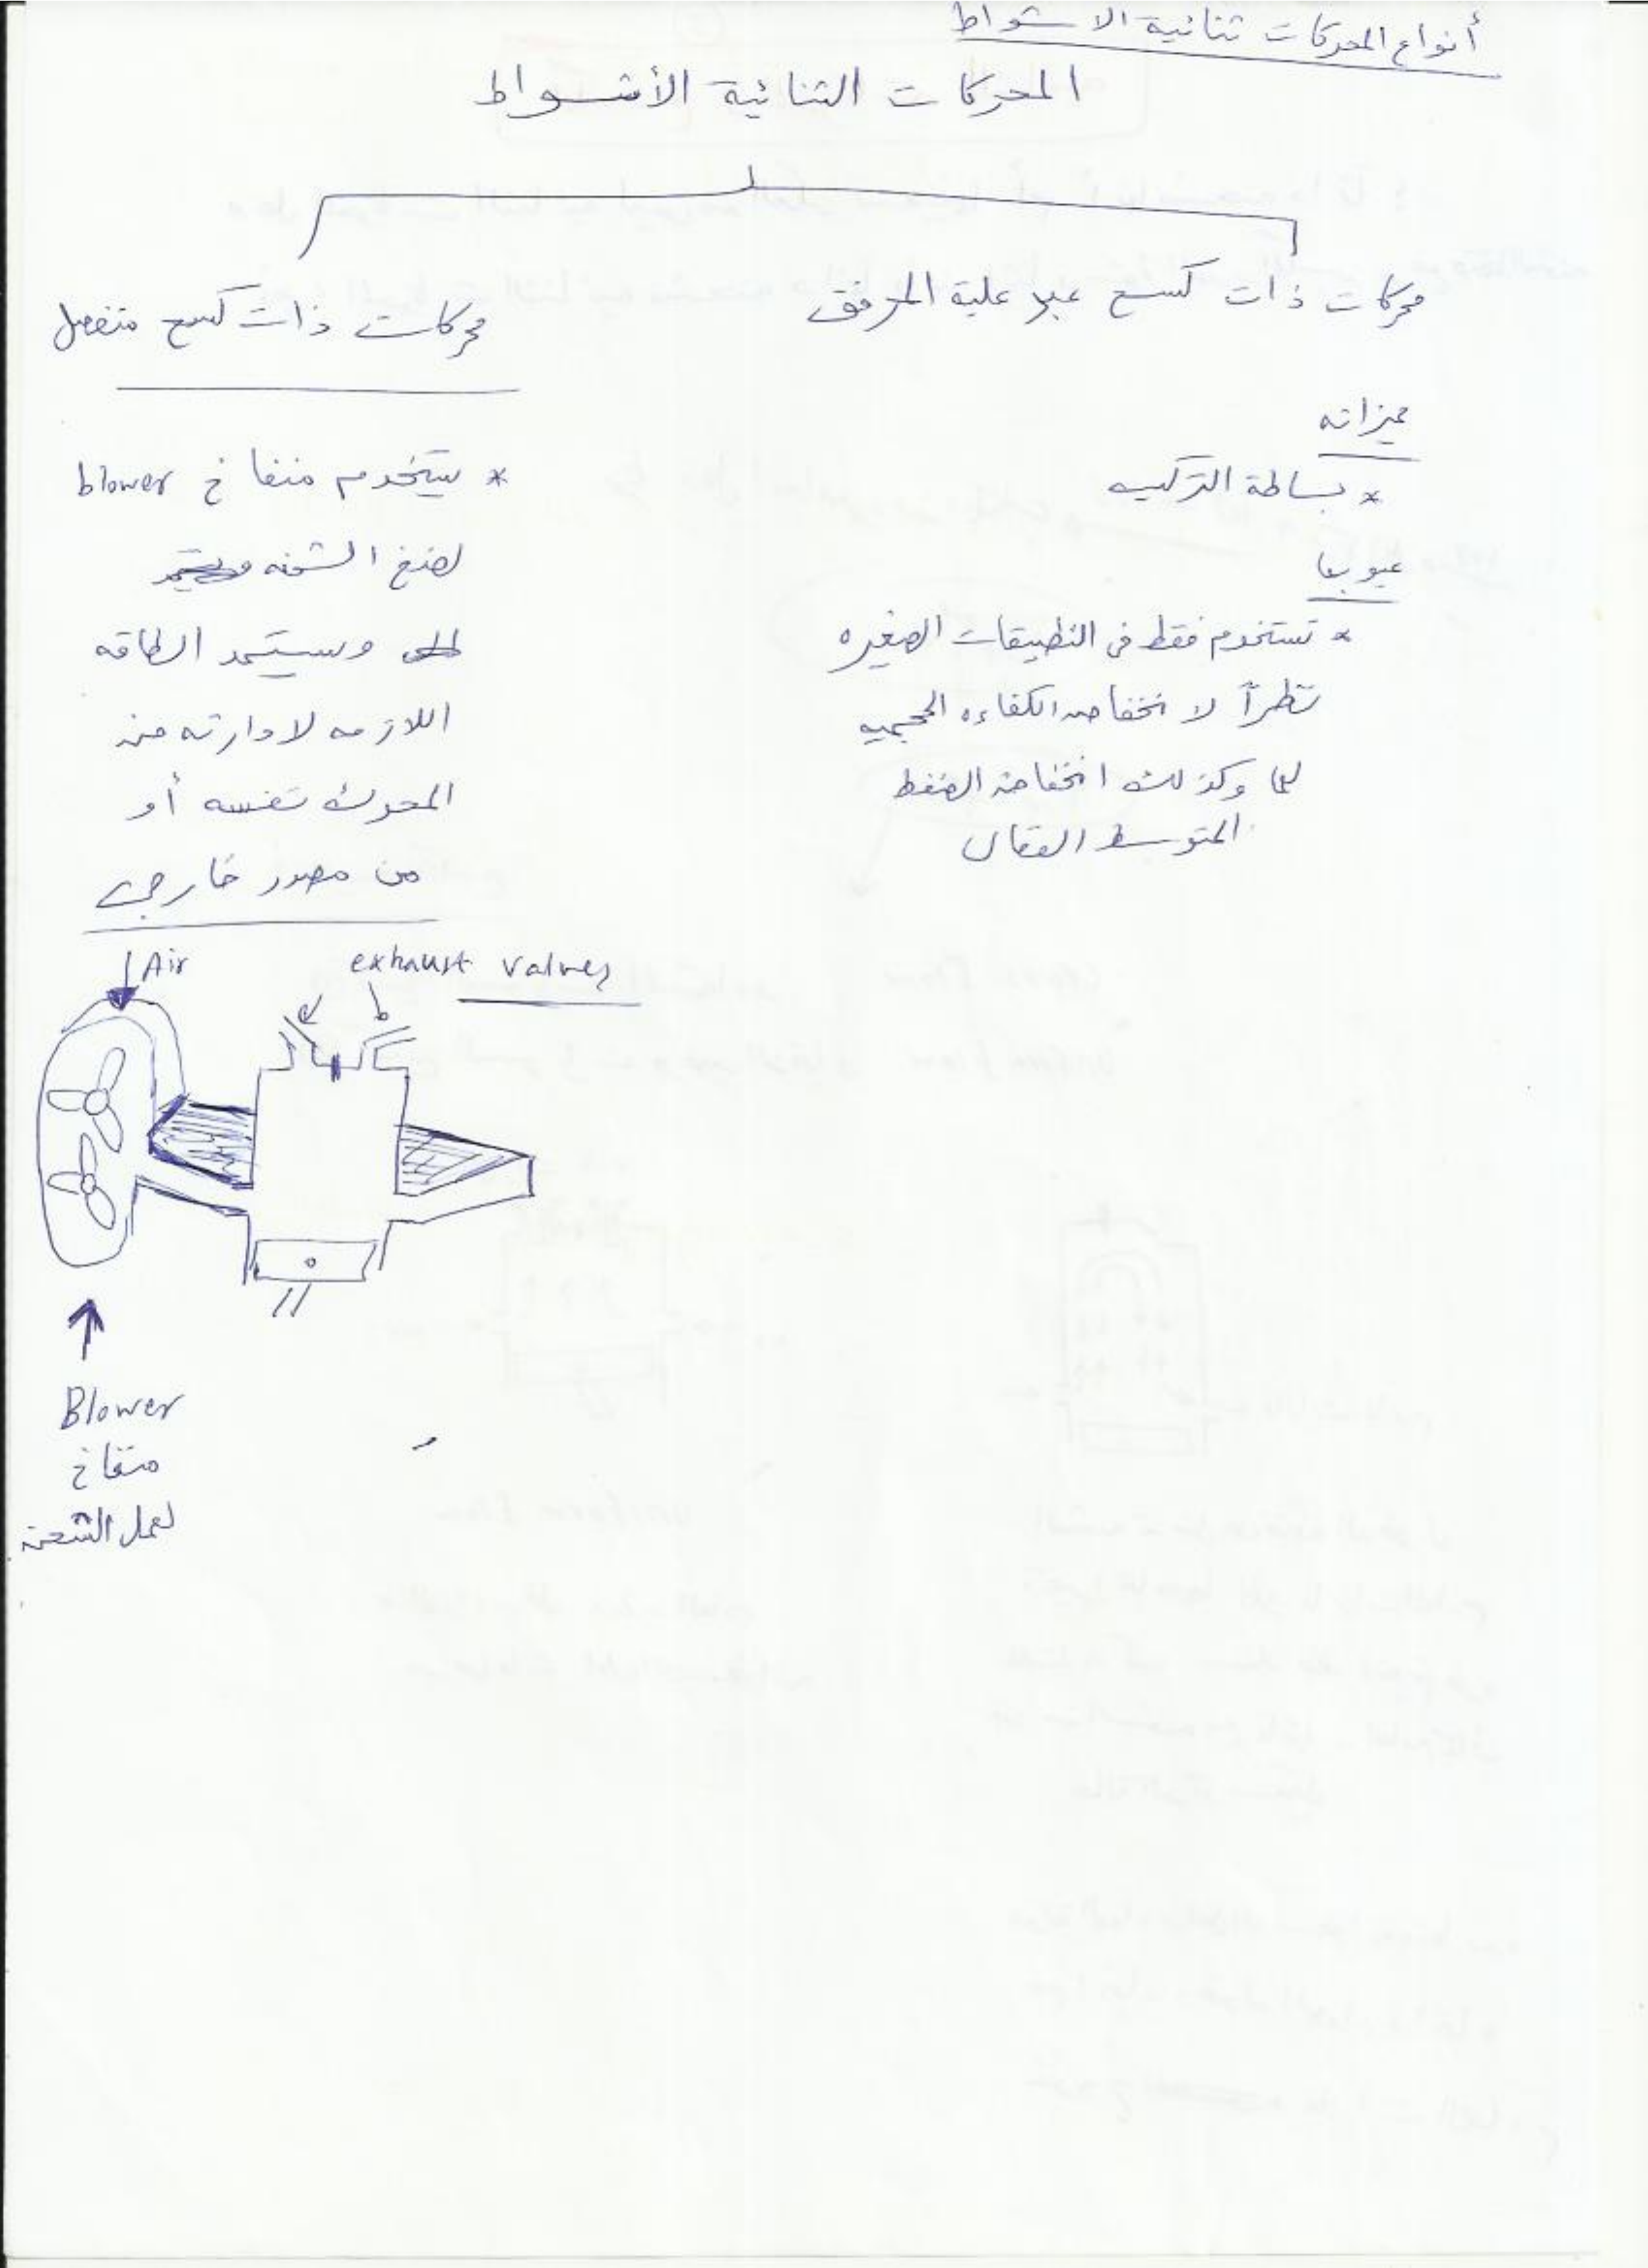 أنواع المحركات ثنائية الاشواط
المحركات الثنائية الأشواط
محركات ذات كسح عبر علبة المرفق
مميزاته
* بساطة التركيب
عيوبها
* تستخدم فقط فى التطبيقات الصغيره
نظراً لانخفاض الكفاءه الحجميه
لها وكذلك انخفاض الضغط
المتوسط الفعال
محركات ذات كسح منفصل
* يستخدم منفاخ blower
لضغ الشحنه
ويستمد الطاقه
اللازمه لادارته من
المحرك نفسه أو
من مصدر خارجى
Air
exhaust valves
Blower
منفاخ
لعمل الشحن